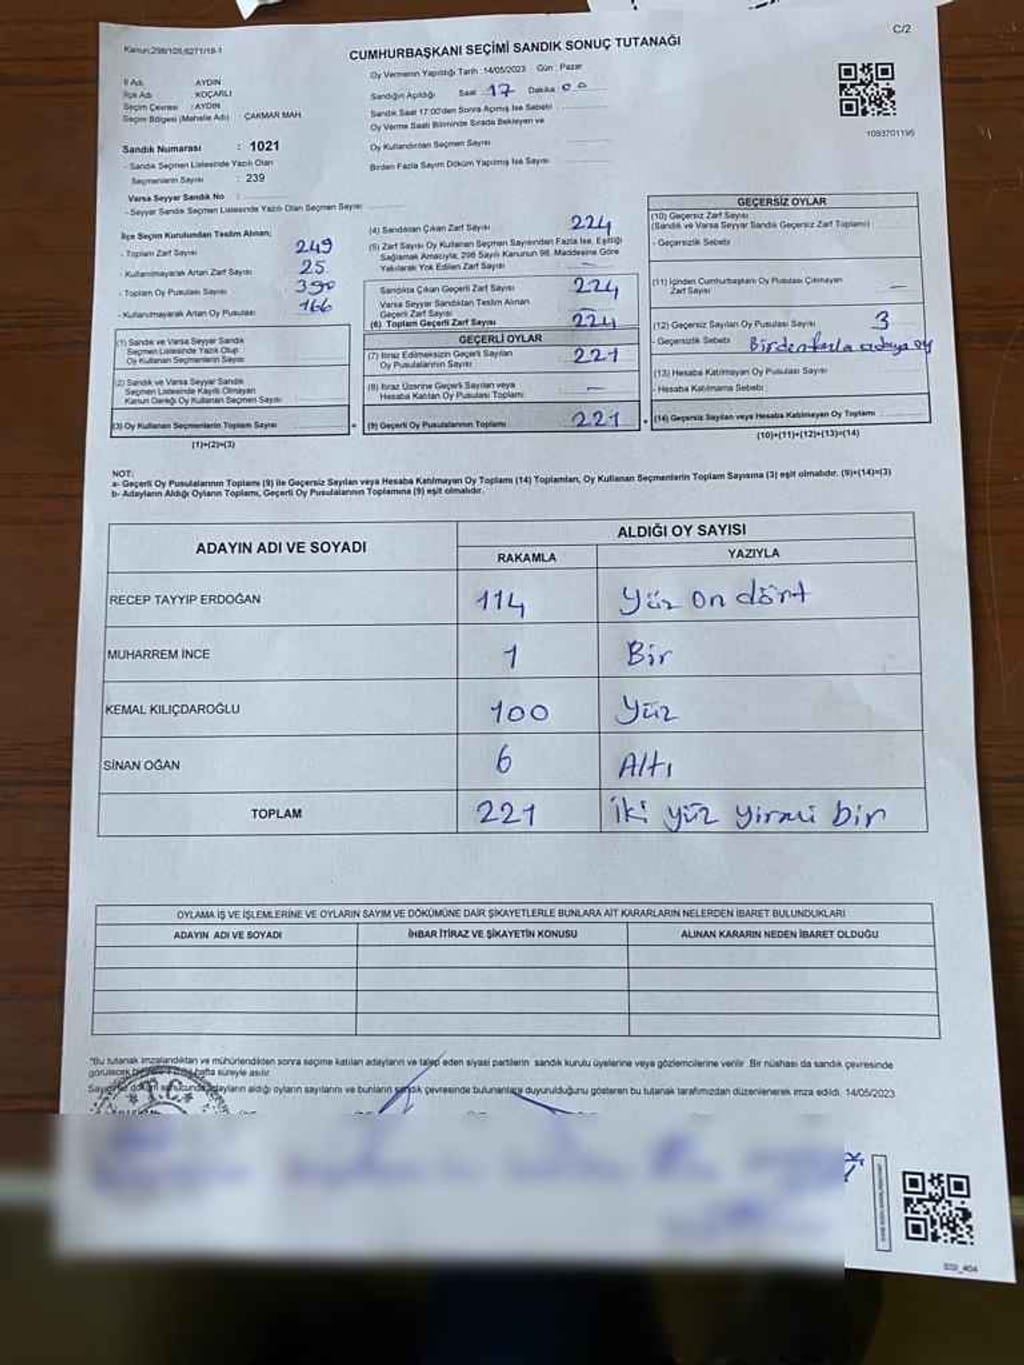 Kanun:298/105,6271/18-1
C/2
CUMHURBAŞKANI SEÇİMİ SANDIK SONUÇ TUTANAĞI
Oy Vermenin Yapıldığı Tarih :14/05/2023 Gün : Pazar
İl Adı AYDIN
İlçe Adı KOÇARLI
Seçim Çevresi : AYDIN
Seçim Bölgesi (Mahalle Adı) : ÇAKMAR MAH.
Sandığın Açıldığı Saat 17 Dakika 00
Sandık Saat 17:00'den Sonra Açılmış İse Sebebi
Oy Verme Saati Bitiminde Sırada Bekleyen ve
Oy Kullandırılan Seçmen Sayısı
Birden Fazla Sayım Döküm Yapılmış İse Sayısı
1093701195
Sandık Numarası : 1021
- Sandık Seçmen Listesinde Yazılı Olan
Seçmenlerin Sayısı : 239
Varsa Seyyar Sandık No :
- Seyyar Sandık Seçmen Listesinde Yazılı Olan Seçmen Sayısı
İlçe Seçim Kurulundan Teslim Alınan;
- Toplam Zarf Sayısı 249
- Kullanılmayarak Artan Zarf Sayısı 25
- Toplam Oy Pusulası Sayısı 390
- Kullanılmayarak Artan Oy Pusulası 166
(1) Sandık ve Varsa Seyyar Sandık
Seçmen Listesinde Yazılı Olup
Oy Kullanan Seçmenlerin Sayısı
(2) Sandık ve Varsa Seyyar Sandık
Seçmen Listesinde Kayıtlı Olmayan
Kanun Gereği Oy Kullanan Seçmen Sayısı
(3) Oy Kullanan Seçmenlerin Toplam Sayısı =
(1)+(2)=(3)
(4) Sandıktan Çıkan Zarf Sayısı 224
(5) Zarf Sayısı Oy Kullanan Seçmen Sayısından Fazla İse, Eşitliği
Sağlamak Amacıyla; 298 Sayılı Kanunun 98. Maddesine Göre
Yakılarak Yok Edilen Zarf Sayısı —
Sandıkta Çıkan Geçerli Zarf Sayısı 224
Varsa Seyyar Sandıktan Teslim Alınan
Geçerli Zarf Sayısı —
(6) Toplam Geçerli Zarf Sayısı 224
GEÇERLİ OYLAR
(7) İtiraz Edilmeksizin Geçerli Sayılan
Oy Pusulalarının Sayısı 221
(8) İtiraz Üzerine Geçerli Sayılan veya
Hesaba Katılan Oy Pusulası Toplamı —
(9) Geçerli Oy Pusulalarının Toplamı 221 +
GEÇERSİZ OYLAR
(10) Geçersiz Zarf Sayısı
(Sandık ve Varsa Seyyar Sandık Geçersiz Zarf Toplamı)
- Geçersizlik Sebebi
(11) İçinden Cumhurbaşkanı Oy Pusulası Çıkmayan
Zarf Sayısı —
(12) Geçersiz Sayılan Oy Pusulası Sayısı 3
- Geçersizlik Sebebi Birden fazla adaya oy
(13) Hesaba Katılmayan Oy Pusulası Sayısı
- Hesaba Katılmama Sebebi
(14) Geçersiz Sayılan veya Hesaba Katılmayan Oy Toplamı
(10)+(11)+(12)+(13)=(14)
NOT:
a- Geçerli Oy Pusulalarının Toplamı (9) ile Geçersiz Sayılan veya Hesaba Katılmayan Oy Toplamı (14) Toplamları, Oy Kullanan Seçmenlerin Toplam Sayısına (3) eşit olmalıdır. (9)+(14)=(3)
b- Adayların Aldığı Oyların Toplamı, Geçerli Oy Pusulalarının Toplamına (9) eşit olmalıdır.
ADAYIN ADI VE SOYADI
ALDIĞI OY SAYISI
RAKAMLA YAZIYLA
RECEP TAYYIP ERDOĞAN 114 Yüz on dört
MUHARREM İNCE 1 Bir
KEMAL KILIÇDAROĞLU 100 Yüz
SİNAN OĞAN 6 Altı
TOPLAM 221 iki yüz yirmi bir
OYLAMA İŞ VE İŞLEMLERİNE VE OYLARIN SAYIM VE DÖKÜMÜNE DAİR ŞİKAYETLERLE BUNLARA AİT KARARLARIN NELERDEN İBARET BULUNDUKLARI
ADAYIN ADI VE SOYADI İHBAR İTİRAZ VE ŞİKAYETİN KONUSU ALINAN KARARIN NEDEN İBARET OLDUĞU
"Bu tutanak imzalandıktan ve mühürlendikten sonra seçime katılan adayların ve talep eden siyasi partilerin sandık kurulu üyelerine veya gözlemcilerine verilir. Bir nüshası da sandık çevresinde
görülecek bir yere 1 hafta süreyle asılır.
adayların aldığı oyların sayılarını ve bunların sandık çevresinde bulunanlara duyurulduğunu gösteren bu tutanak tarafımızdan düzenlenerek imza edildi. 14/05/2023
T.C.